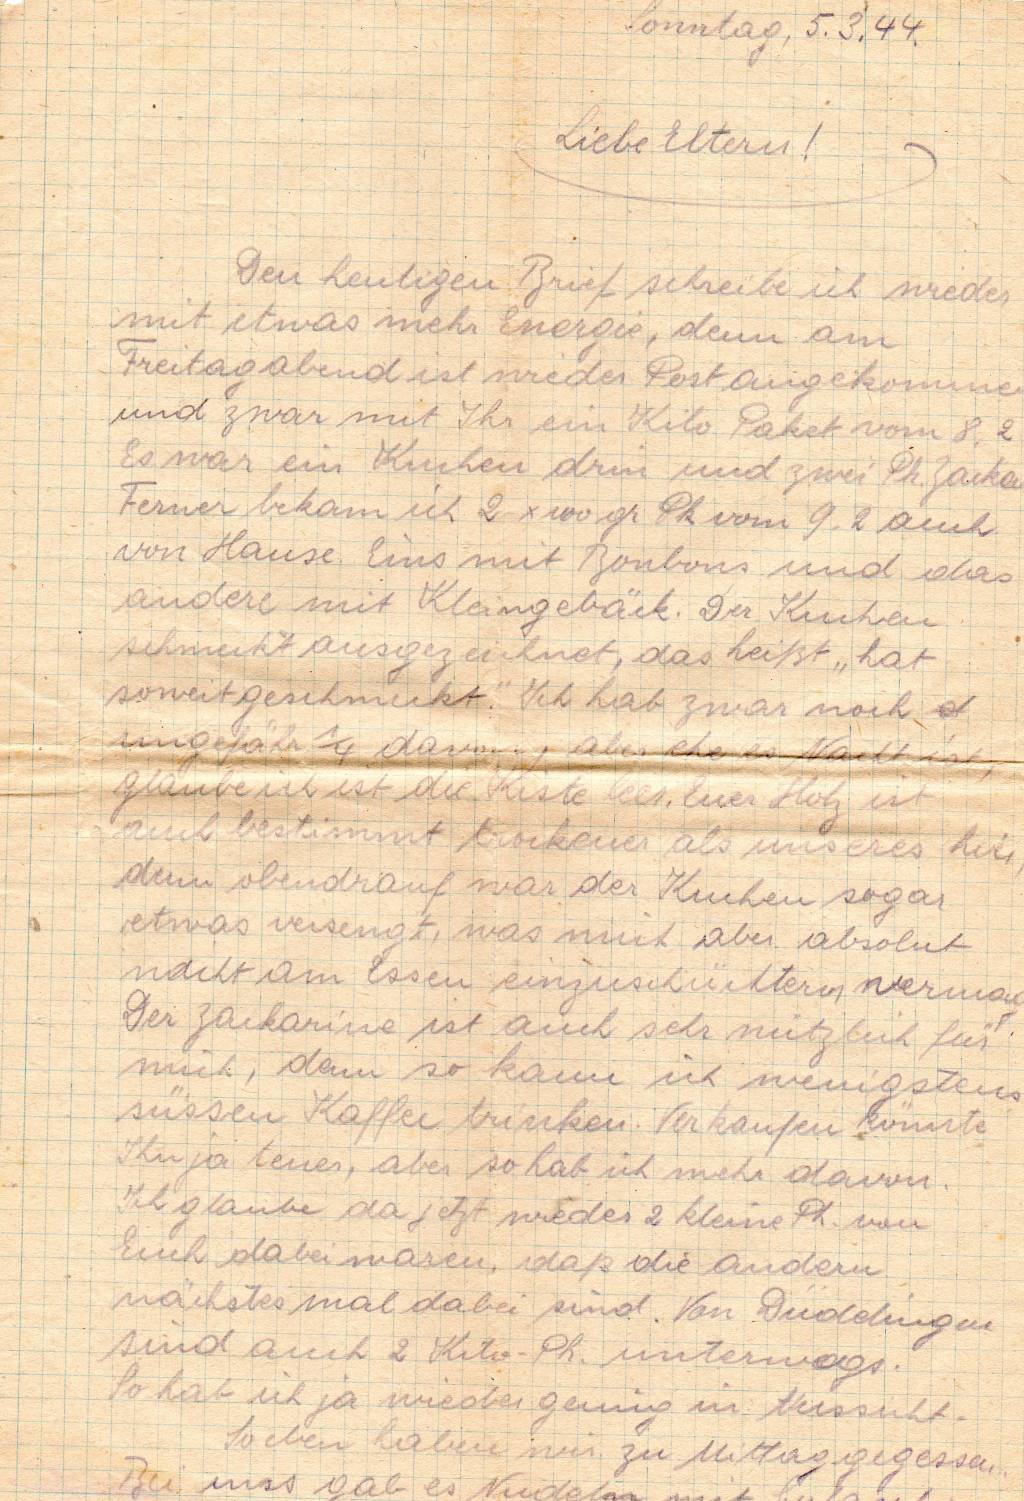 Sonntag, 5.3.44.
Liebe Eltern!
Den heutigen Brief schreibe ich wieder
mit etwas mehr Energie, denn am
Freitagabend ist wieder Post angekommen
und zwar mit Ihr ein Kilo Paket vom 8.2
Es war ein Kuchen drin und zwei Pk.
Ferner bekam ich 2 x 100 gr Pk vom 9.2 auch
von Hause. Eins mit Bonbons und das
andere mit Kleingebäck. Der Kuchen
schmeckt ausgezeichnet, das heißt „hat
soweit geschmeckt." Ich hab zwar noch
ungefähr ¼ davon, aber ehe es Nacht ist,
glaube ich ist die Kiste leer. Euer Holz ist
auch bestimmt trockener als unseres hier,
denn obendrauf war der Kuchen sogar
etwas versengt, was mich aber absolut
nicht am Essen einzuschüchtern vermag.
Der Zackarine ist auch sehr nützlich für
mich, denn so kann ich wenigstens
süssen Kaffee trinken. Verkaufen könnte
Ihn ja teuer, aber so hab ich mehr davon.
Ich glaube da jetzt wieder 2 kleine Pk. von
Euch dabei waren, daß die andern
nächstes mal dabei sind. Von Düddingen
sind auch 2 Kilo-Pk. unterwegs.
So hab ich ja wieder genug in Aussicht.
Soeben haben wir zu Mittag gegessen.
Bei uns gab es Nudeln mit